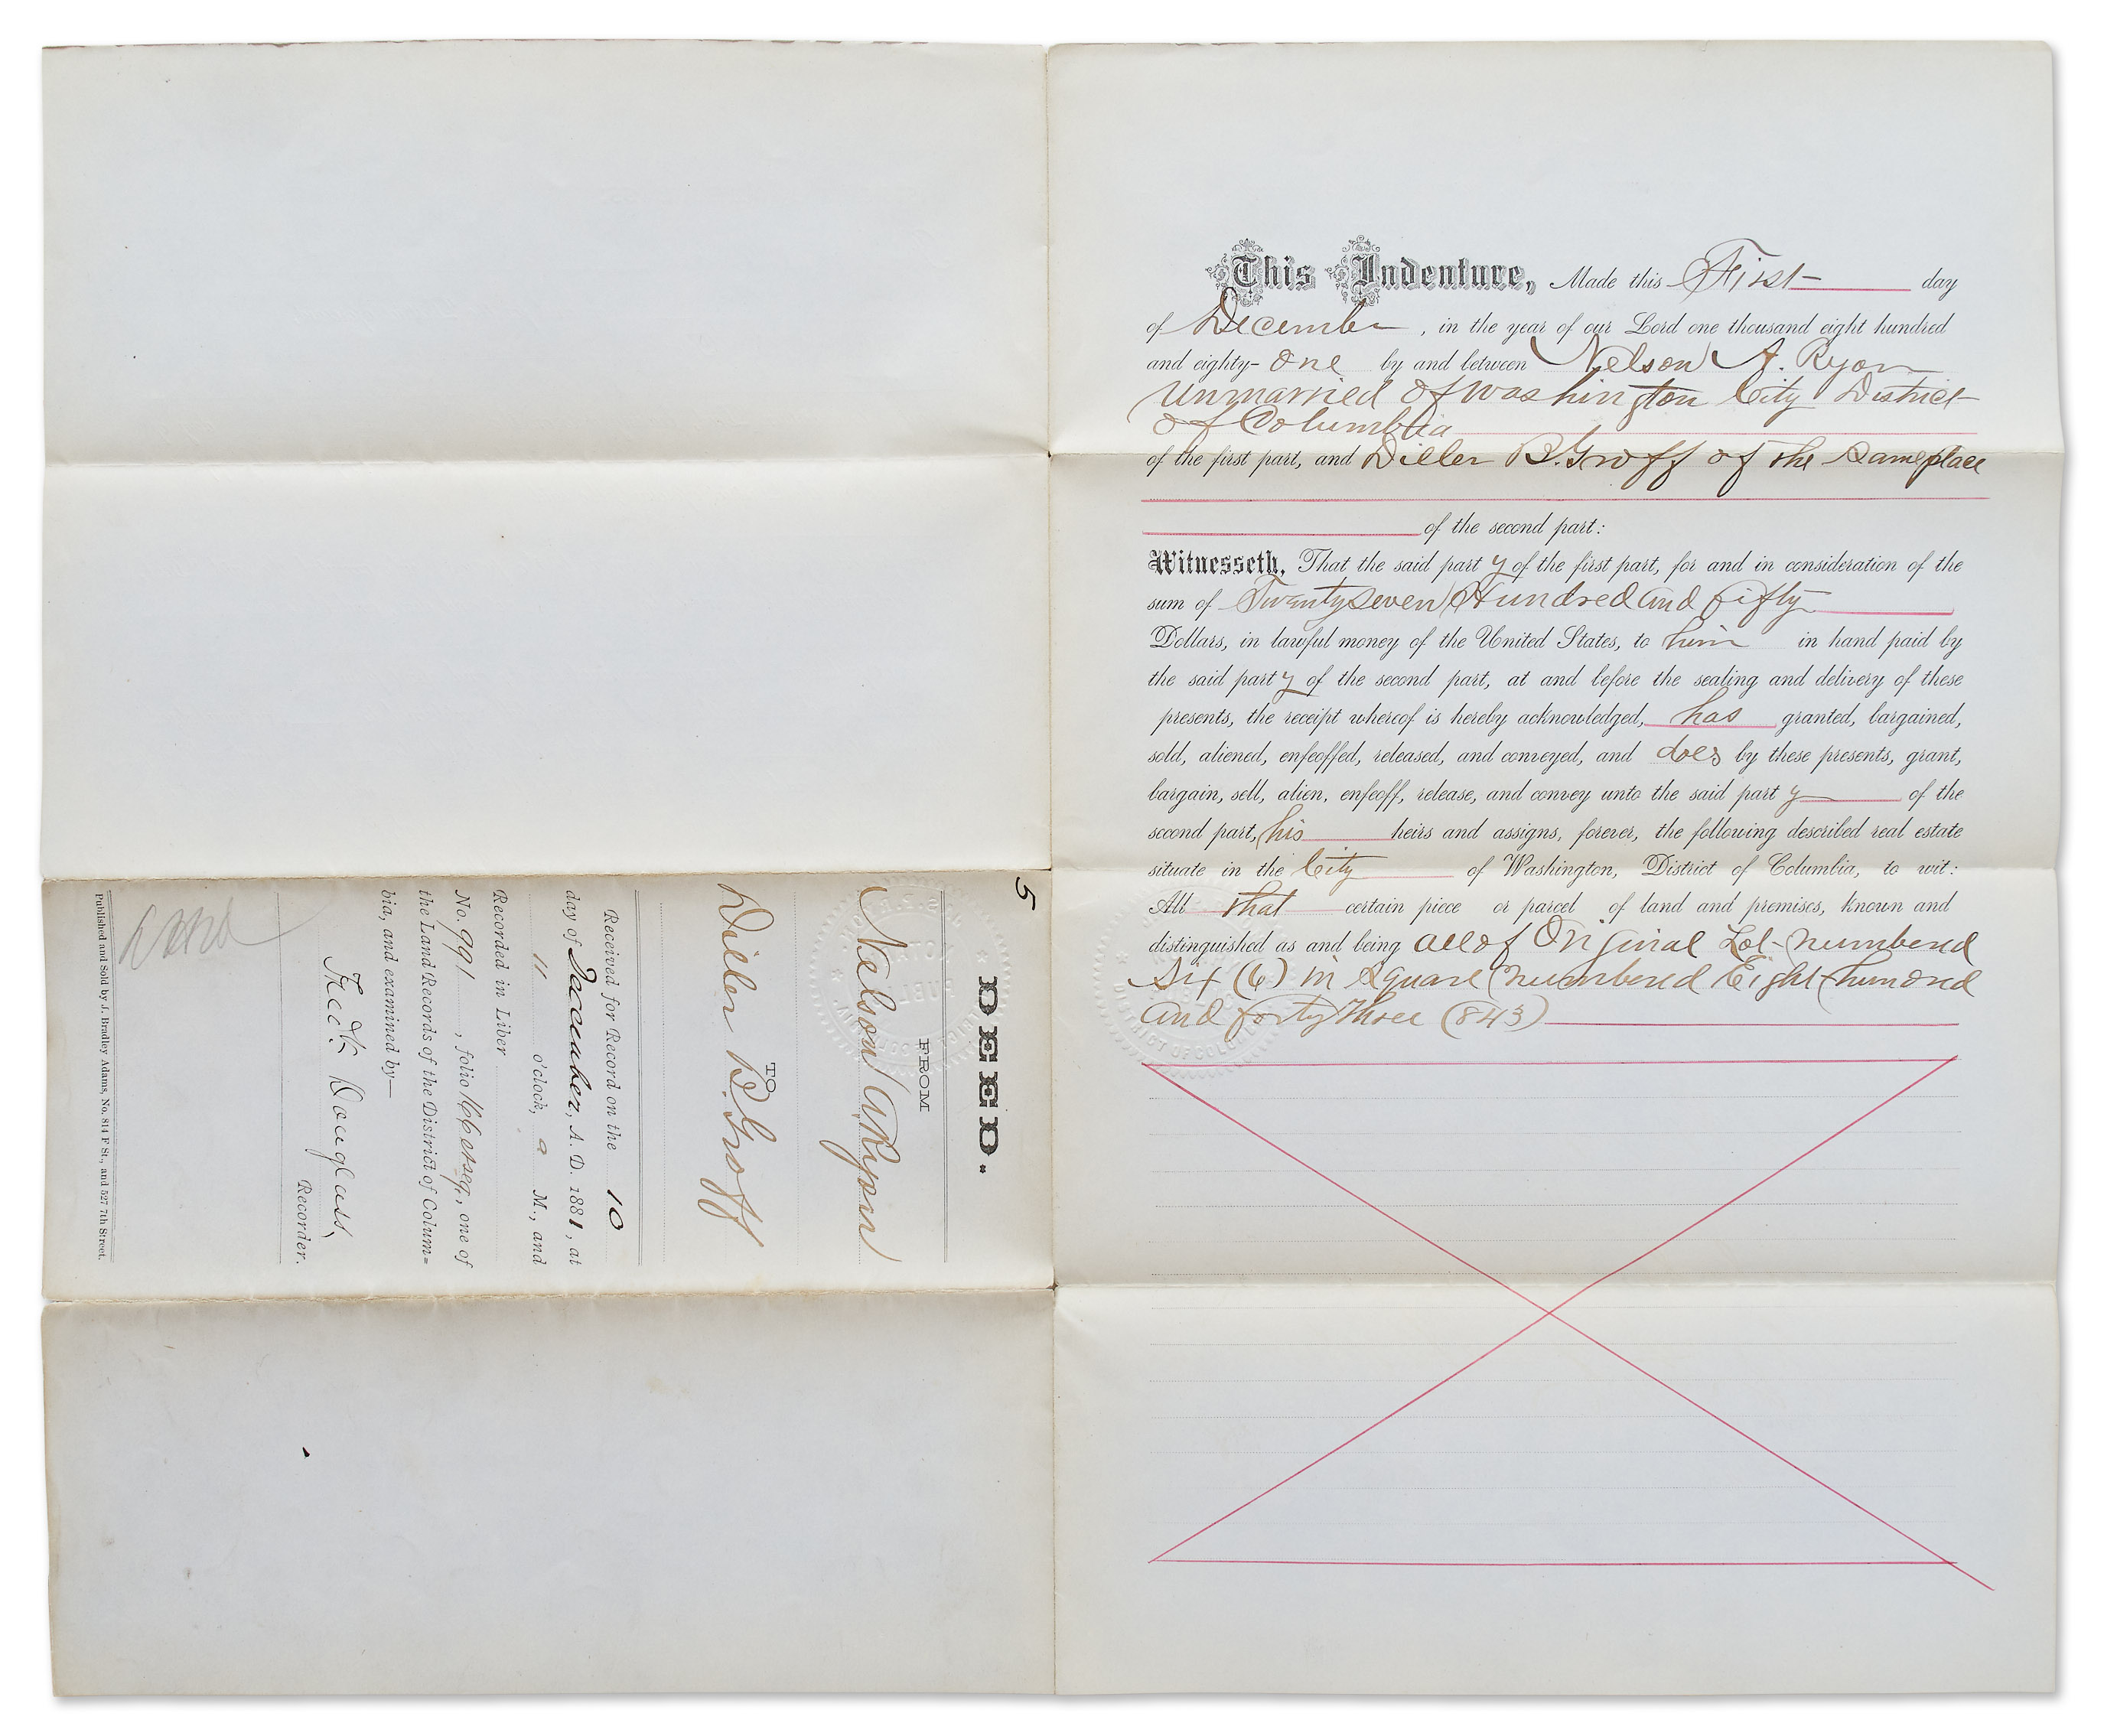 This Indenture, Made this First day
of December, in the year of our Lord one thousand eight hundred
and eighty-one by and between Nelson A. Ryon
unmarried of Washington City District
of Columbia
of the first part, and Diller B. Groff of the same place
of the second part:
Witnesseth, That the said party of the first part, for and in consideration of the
sum of Twenty seven Hundred and fifty
Dollars, in lawful money of the United States, to him in hand paid by
the said party of the second part, at and before the sealing and delivery of these
presents, the receipt whereof is hereby acknowledged, has granted, bargained,
sold, aliened, enfeoffed, released, and conveyed, and does by these presents, grant,
bargain, sell, alien, enfeoff, release, and convey unto the said party of the
second part, his heirs and assigns, forever, the following described real estate
situate in the City of Washington, District of Columbia, to wit:
All that certain piece or parcel of land and premises, known and
distinguished as and being all of Original Lot numbered
Six (6) in Square numbered Eight hundred
and forty three (843)
5
DEED.
FROM
Nelson A Ryon
TO
Diller B. Groff
Received for Record on the 10
day of December, A. D. 1881, at
11 o'clock, a M., and
Recorded in Liber
No. 991, folio 166 et seq., one of
the Land Records of the District of Colum=
bia, and examined by—
Fredk Douglass,
Recorder.
Published and Sold by J. Bradley Adams, No. 814 F St., and 527 7th Street.